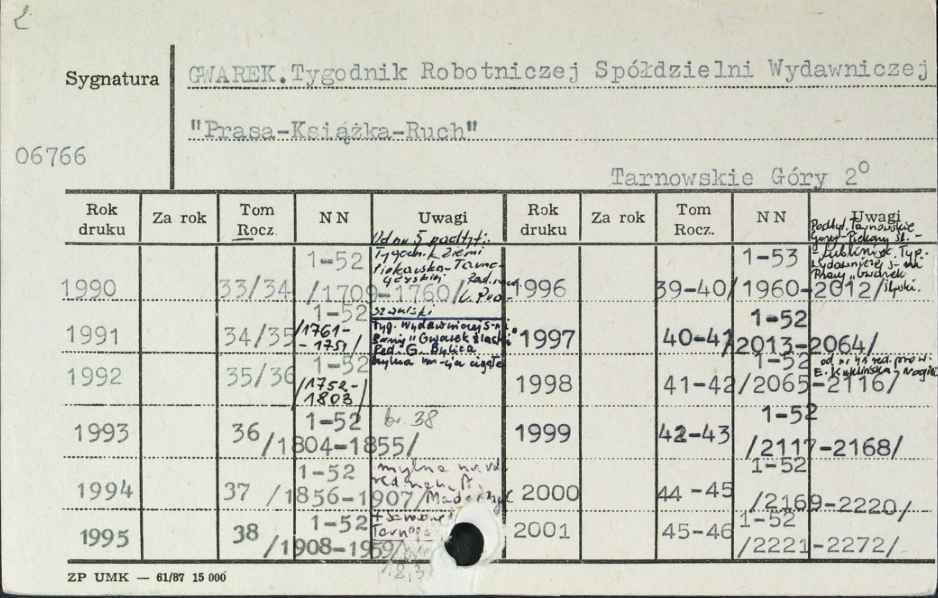 Sygnatura
06766
GWAREK.Tygodnik Robotniczej Spółdzielni Wydawniczej
"Prasa-Książka-Ruch"
Tarnowskie Góry 2°
Rok druku Za rok Tom Rocz. NN Uwagi Rok druku Za rok Tom Rocz. NN Uwagi
1990 33/34 1-52 /1709-1760/ Od nr 5 podtyt.: Tygodn. Ziemi
1991 34/35 1-52 /1761- -1751/ Typ. Wydawniczej S-ni Pracy "Gwarek Śląski" Red. G. Bylica mylna nu-cja ciągła
1992 35/36 1-52 /1752- 1803
1993 36 1-52 /1804-1855/ b. 38
1994 37 1-52 /1856-1907/ mylna
1995 38 1-52 /1908-1959/
1996 39-40 1-53 /1960-2012/ Podtyt. Tarnowskie Góry-Piekary Śl.-
1997 40-41 1-52 /2013-2064/
1998 41-42 1-52 /2065-2116/
1999 42-43 1-52 /2117-2168/
2000 44-45 1-52 /2169-2220/
2001 45-46 1-52 /2221-2272/
ZP UMK — 61/87 15 000